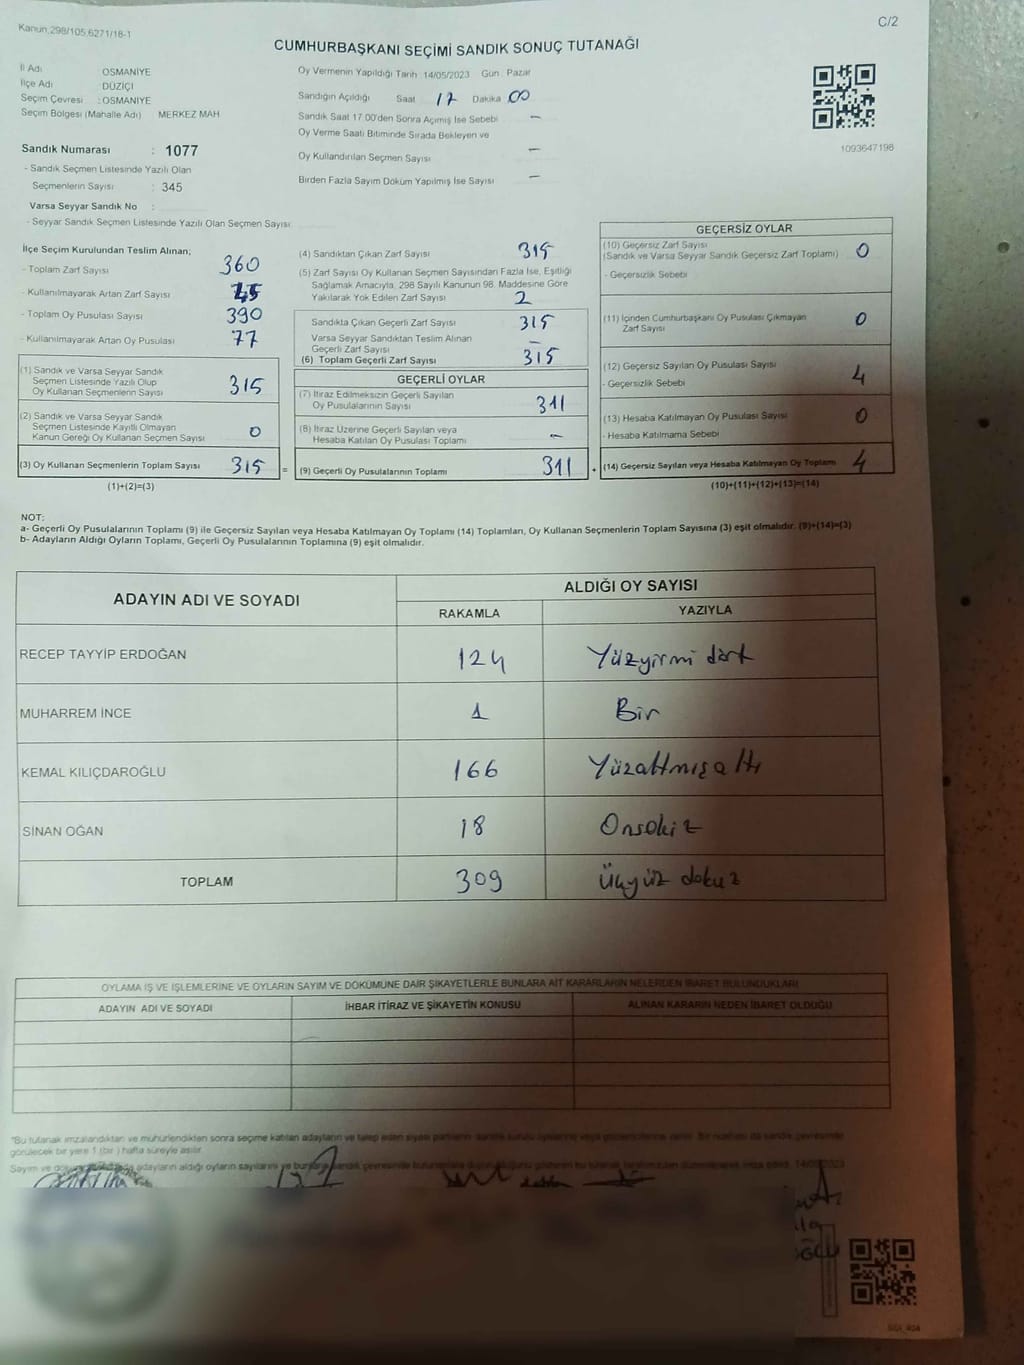 Kanun,298/105,6271/18-1
C/2
CUMHURBAŞKANI SEÇİMİ SANDIK SONUÇ TUTANAĞI
İl Adı OSMANİYE
İlçe Adı DÜZİÇİ
Seçim Çevresi : OSMANİYE
Seçim Bölgesi (Mahalle Adı) MERKEZ MAH
Sandık Numarası : 1077
- Sandık Seçmen Listesinde Yazılı Olan
Seçmenlerin Sayısı : 345
Varsa Seyyar Sandık No :
- Seyyar Sandık Seçmen Listesinde Yazılı Olan Seçmen Sayısı:
Oy Vermenin Yapıldığı Tarih 14/05/2023 Gün Pazar
Sandığın Açıldığı Saat 17 Dakika 00
Sandık Saat 17.00'den Sonra Açımış İse Sebebi -
Oy Verme Saati Bitiminde Sırada Bekleyen ve
Oy Kullandırılan Seçmen Sayısı -
Birden Fazla Sayım Döküm Yapılmış İse Sayısı -
1093647198
İlçe Seçim Kurulundan Teslim Alınan;
- Toplam Zarf Sayısı 360
- Kullanılmayarak Artan Zarf Sayısı
- Toplam Oy Pusulası Sayısı 390
- Kullanılmayarak Artan Oy Pusulası 77
(1) Sandık ve Varsa Seyyar Sandık
Seçmen Listesinde Yazılı Olup
Oy Kullanan Seçmenlerin Sayısı 315
(2) Sandık ve Varsa Seyyar Sandık
Seçmen Listesinde Kayıtlı Olmayan
Kanun Gereği Oy Kullanan Seçmen Sayısı 0
(3) Oy Kullanan Seçmenlerin Toplam Sayısı 315 =
(1)+(2)=(3)
(4) Sandıktan Çıkan Zarf Sayısı 315
(5) Zarf Sayısı Oy Kullanan Seçmen Sayısından Fazla İse, Eşitliği
Sağlamak Amacıyla, 298 Sayılı Kanunun 98. Maddesine Göre
Yakılarak Yok Edilen Zarf Sayısı 2
Sandıkta Çıkan Geçerli Zarf Sayısı 315
Varsa Seyyar Sandıktan Teslim Alınan
Geçerli Zarf Sayısı -
(6) Toplam Geçerli Zarf Sayısı 315
GEÇERLİ OYLAR
(7) İtiraz Edilmeksizin Geçerli Sayılan
Oy Pusulalarının Sayısı 311
(8) İtiraz Üzerine Geçerli Sayılan veya
Hesaba Katılan Oy Pusulası Toplamı -
(9) Geçerli Oy Pusulalarının Toplamı 311 +
GEÇERSİZ OYLAR
(10) Geçersiz Zarf Sayısı
(Sandık ve Varsa Seyyar Sandık Geçersiz Zarf Toplamı) 0
- Geçersizlik Sebebi
(11) İçinden Cumhurbaşkanı Oy Pusulası Çıkmayan
Zarf Sayısı 0
(12) Geçersiz Sayılan Oy Pusulası Sayısı 4
- Geçersizlik Sebebi
(13) Hesaba Katılmayan Oy Pusulası Sayısı 0
- Hesaba Katılmama Sebebi
(14) Geçersiz Sayılan veya Hesaba Katılmayan Oy Toplamı 4
(10)+(11)+(12)+(13)=(14)
NOT:
a- Geçerli Oy Pusulalarının Toplamı (9) ile Geçersiz Sayılan veya Hesaba Katılmayan Oy Toplamı (14) Toplamları, Oy Kullanan Seçmenlerin Toplam Sayısına (3) eşit olmalıdır. (9)+(14)=(3)
b- Adayların Aldığı Oyların Toplamı, Geçerli Oy Pusulalarının Toplamına (9) eşit olmalıdır.
ADAYIN ADI VE SOYADI
ALDIĞI OY SAYISI
RAKAMLA YAZIYLA
RECEP TAYYİP ERDOĞAN 124 Yüzyirmi dört
MUHARREM İNCE 1 Bir
KEMAL KILIÇDAROĞLU 166 Yüzaltmışaltı
SİNAN OĞAN 18 Onsekiz
TOPLAM 309 Üçyüz dokuz
OYLAMA İŞ VE İŞLEMLERİNE VE OYLARIN SAYIM VE DÖKÜMÜNE DAİR ŞİKAYETLERLE BUNLARA AİT KARARLARIN NELERDEN İBARET BULUNDUKLARI
ADAYIN ADI VE SOYADI İHBAR İTİRAZ VE ŞİKAYETİN KONUSU ALINAN KARARIN NEDEN İBARET OLDUĞU
"Bu tutanak imzalandıktan ve mühürlendikten sonra seçime katılan adayların ve talep eden siyasi partilerin
görülecek bir yere 1 (bir) hafta süreyle asılır.
Sayım ve adayların aldığı oyların sayılarını ve